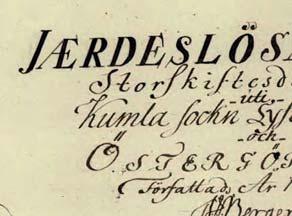 JÆRDESLÖSA
Storskiftesd
-uti-
Kumla sockn Lyss
-och-
ÖSTERGÖT
Författad År
Berger